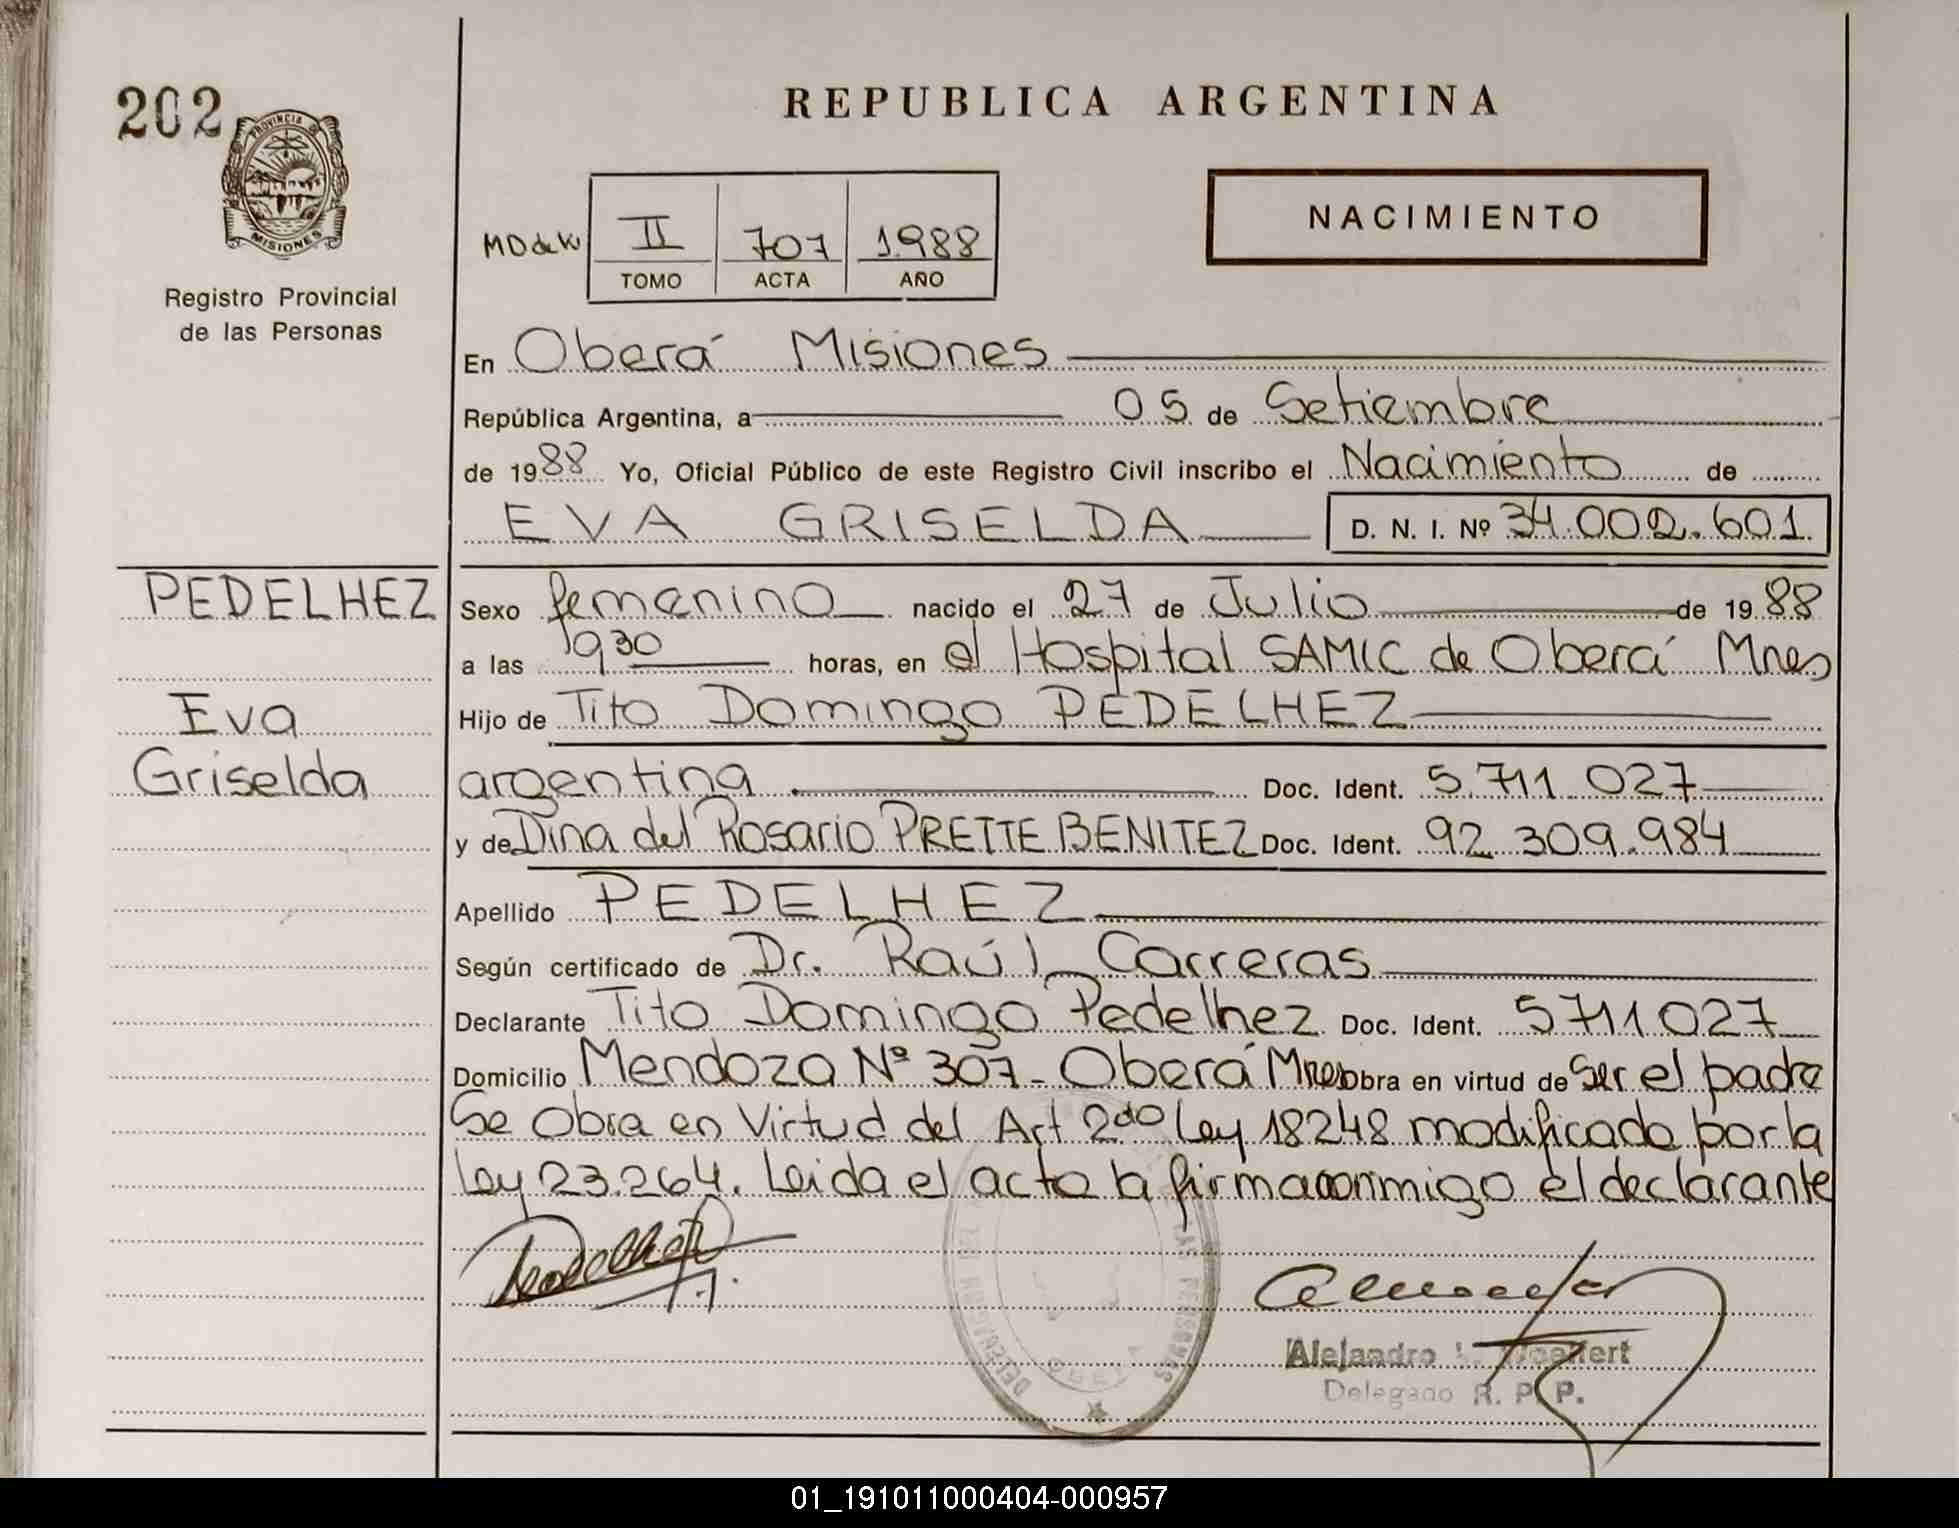 202
PROVINCIA DE
MISIONES
Registro Provincial
de las Personas
REPUBLICA ARGENTINA
II 707 1988
TOMO ACTA AÑO
NACIMIENTO
En Oberá Misiones
República Argentina, a 05 de Setiembre
de 1988 Yo, Oficial Público de este Registro Civil inscribo el Nacimiento de
EVA GRISELDA D. N. I. Nº 34.002.601
PEDELHEZ
Eva
Griselda
Sexo femenino nacido el 27 de Julio de 1988
a las 1930 horas, en el Hospital SAMIC de Oberá Mnes
Hijo de Tito Domingo PEDELHEZ
argentina Doc. Ident. 5.711.027
y de Dina del Rosario PRETTE BENITEZ Doc. Ident. 92.309.984
Apellido PEDELHEZ
Según certificado de Dr. Raúl Carreras
Declarante Tito Domingo Pedelhez Doc. Ident. 5711027
Domicilio Mendoza Nº 307- Oberá Mnes obra en virtud de Ser el padre
Se Obra en Virtud del Art 2do Ley 18248 modificado por la
Ley 23.264. Leida el acta la firma conmigo el declarante
Alejandro
Delegado R. P. P.
01_191011000404-000957